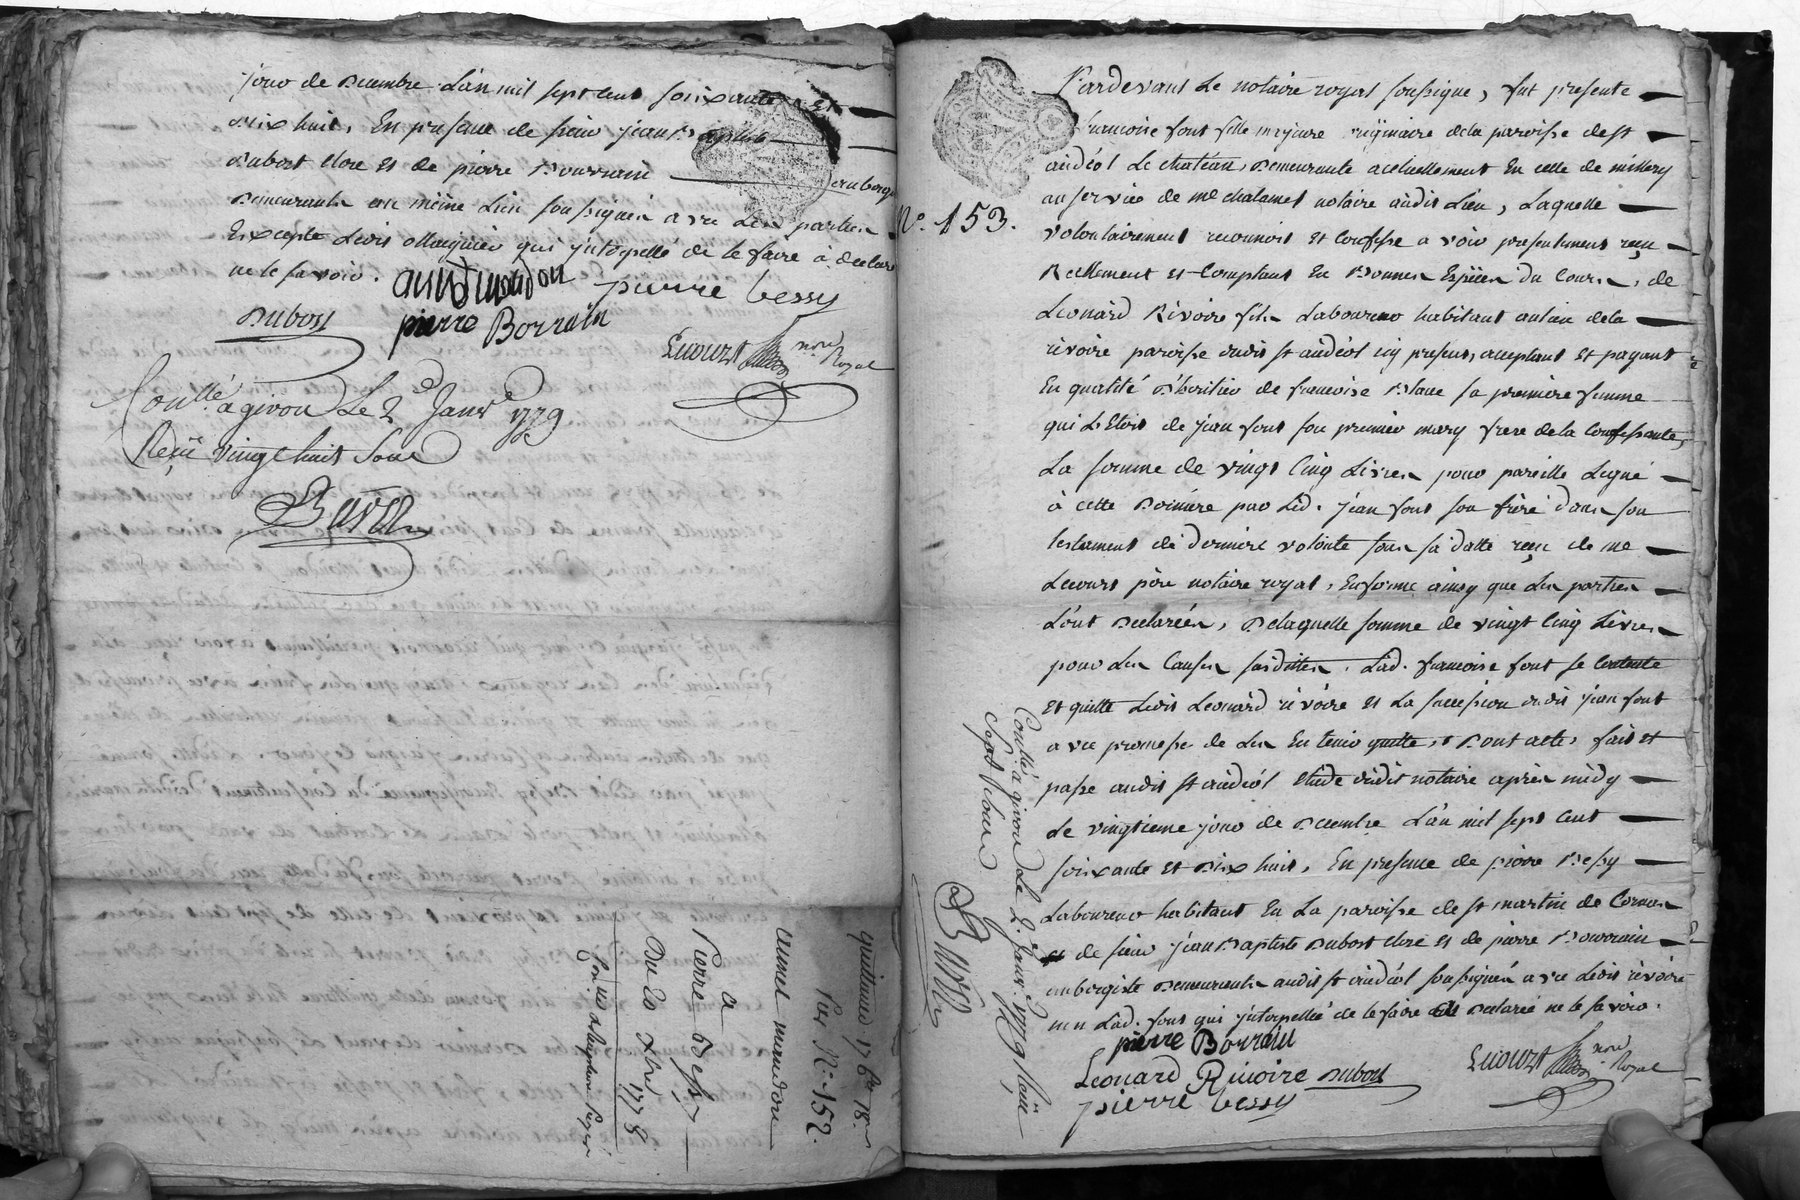 jour de Decembre L'an mil sept cent soixante et
dix huit, En presence de sieur jean Baptiste
Dubost clerc et de pierre Bourrain auberge
Demeurants au même Lieu soussignés avec Les parties
Excepté Ledit qui jnterpellé de le faire à declaré
ne le savoir.
pierre bessy
Dubost
pierre Borrain
Lecourt no.re Royal
Con.llé a givors Le 2.e Janv.r 1779
Reçu vingt huit sous
quittance
N.o 152.
a
Pierre Bessy
Du 20 Xbre 1778
N.o 153.
Pardevant Le notaire royal soussigné, fut presente
francoise font fille majeure originaire de la paroisse de st
andéol Le chateau, Demeurante actuellement En celle de millery
au service de me chatamel notaire audit Lieu, Laquelle
volontairement reconnoit et Confesse avoir presentement reçu
Réellement et Comptant En Bonnes Espéces du Cours, de
Léonard Rivoire fils Laboureur habitant au lieu de la
rivoire paroisse dudit st andéol icy present, acceptant et payant
En qualité D'heritier de francoise Blanc sa première femme
qui L'Etoit de jean font son premier mary frere de la Confessante,
La somme de vingt Cinq Livres pour pareille Legué
à cette Dernière par Led. jean font son frère dans son
testament de derniere volonté sous sa datte reçu de me
Lecourt père notaire royal, En forme ainsy que Les parties
L'ont Declarées, De laquelle somme de vingt Cinq Livres
pour Les Causes susdittes, Lad. francoise font se Contente
et quitte Ledit Leonard rivoire et La succession dudit jean font
avec promesse de Les En tenir quitte, Dont acte, fait et
passé audit st andéol Etude dudit notaire après midy
Le vingtieme jour de Decembre L'an mil sept cent
soixante et dix huit, En presence de pierre Bessy
Laboureur habitant En La paroisse de st martin de Cornas
et de sieur jean Baptiste Dubost clerc et de pierre Bourrain
aubergiste Demeurants audit st andéol soussignés avec Ledit rivoire
non Lad. font qui jnterpellée de le faire a Declaré ne le savoir.
pierre Borrain
Leonard Rivoire Dubost
pierre bessy
Lecourt no.re Royal
Con.llé a givors Le 2.e Janv.r 1779 Reçu
sept sous